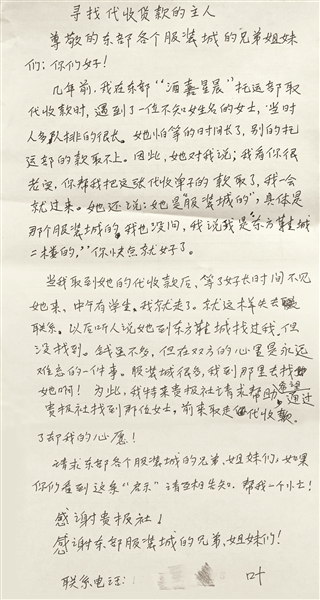 寻找代收货款的主人
尊敬的东部各个服装城的兄弟姐妹
们：你们好！
几年前，我在东部“海嘉星晨”托运部取
代收款时，遇到了一位不知姓名的女士，当时
人多队排的很长。她怕等的时间长了，别的托
运部的款取不上。因此，她对我说；我看你很
老实，你帮我把这张代收单子的款取了，我一会
就过来。她还说：她是“服装城的”，具体是
那个服装城的，我也没问，我说我是“东方鞋城
二楼的，”你快点就好了。
当我取到她的代收款后，等了好长时间不见
她来，中午有学生，我就走了。就这样失去
联系。以后听人说她到东方鞋城找过我，但
没找到。钱虽不多，但在双方的心里是永远
难忘的一件事。服装城很多，我到那里去找
她啊！为此，我特来贵报社请求帮助，希望通过
贵报社找到那位女士，前来取走代收款。
了却我的心愿！
请求东部各个服装城的兄弟、姐妹们，如果
你们看到这条“启示”请互相告知，帮我一个小忙！
感谢贵报社！
感谢东部服装城的兄弟、姐妹们！
联系电话： 叶